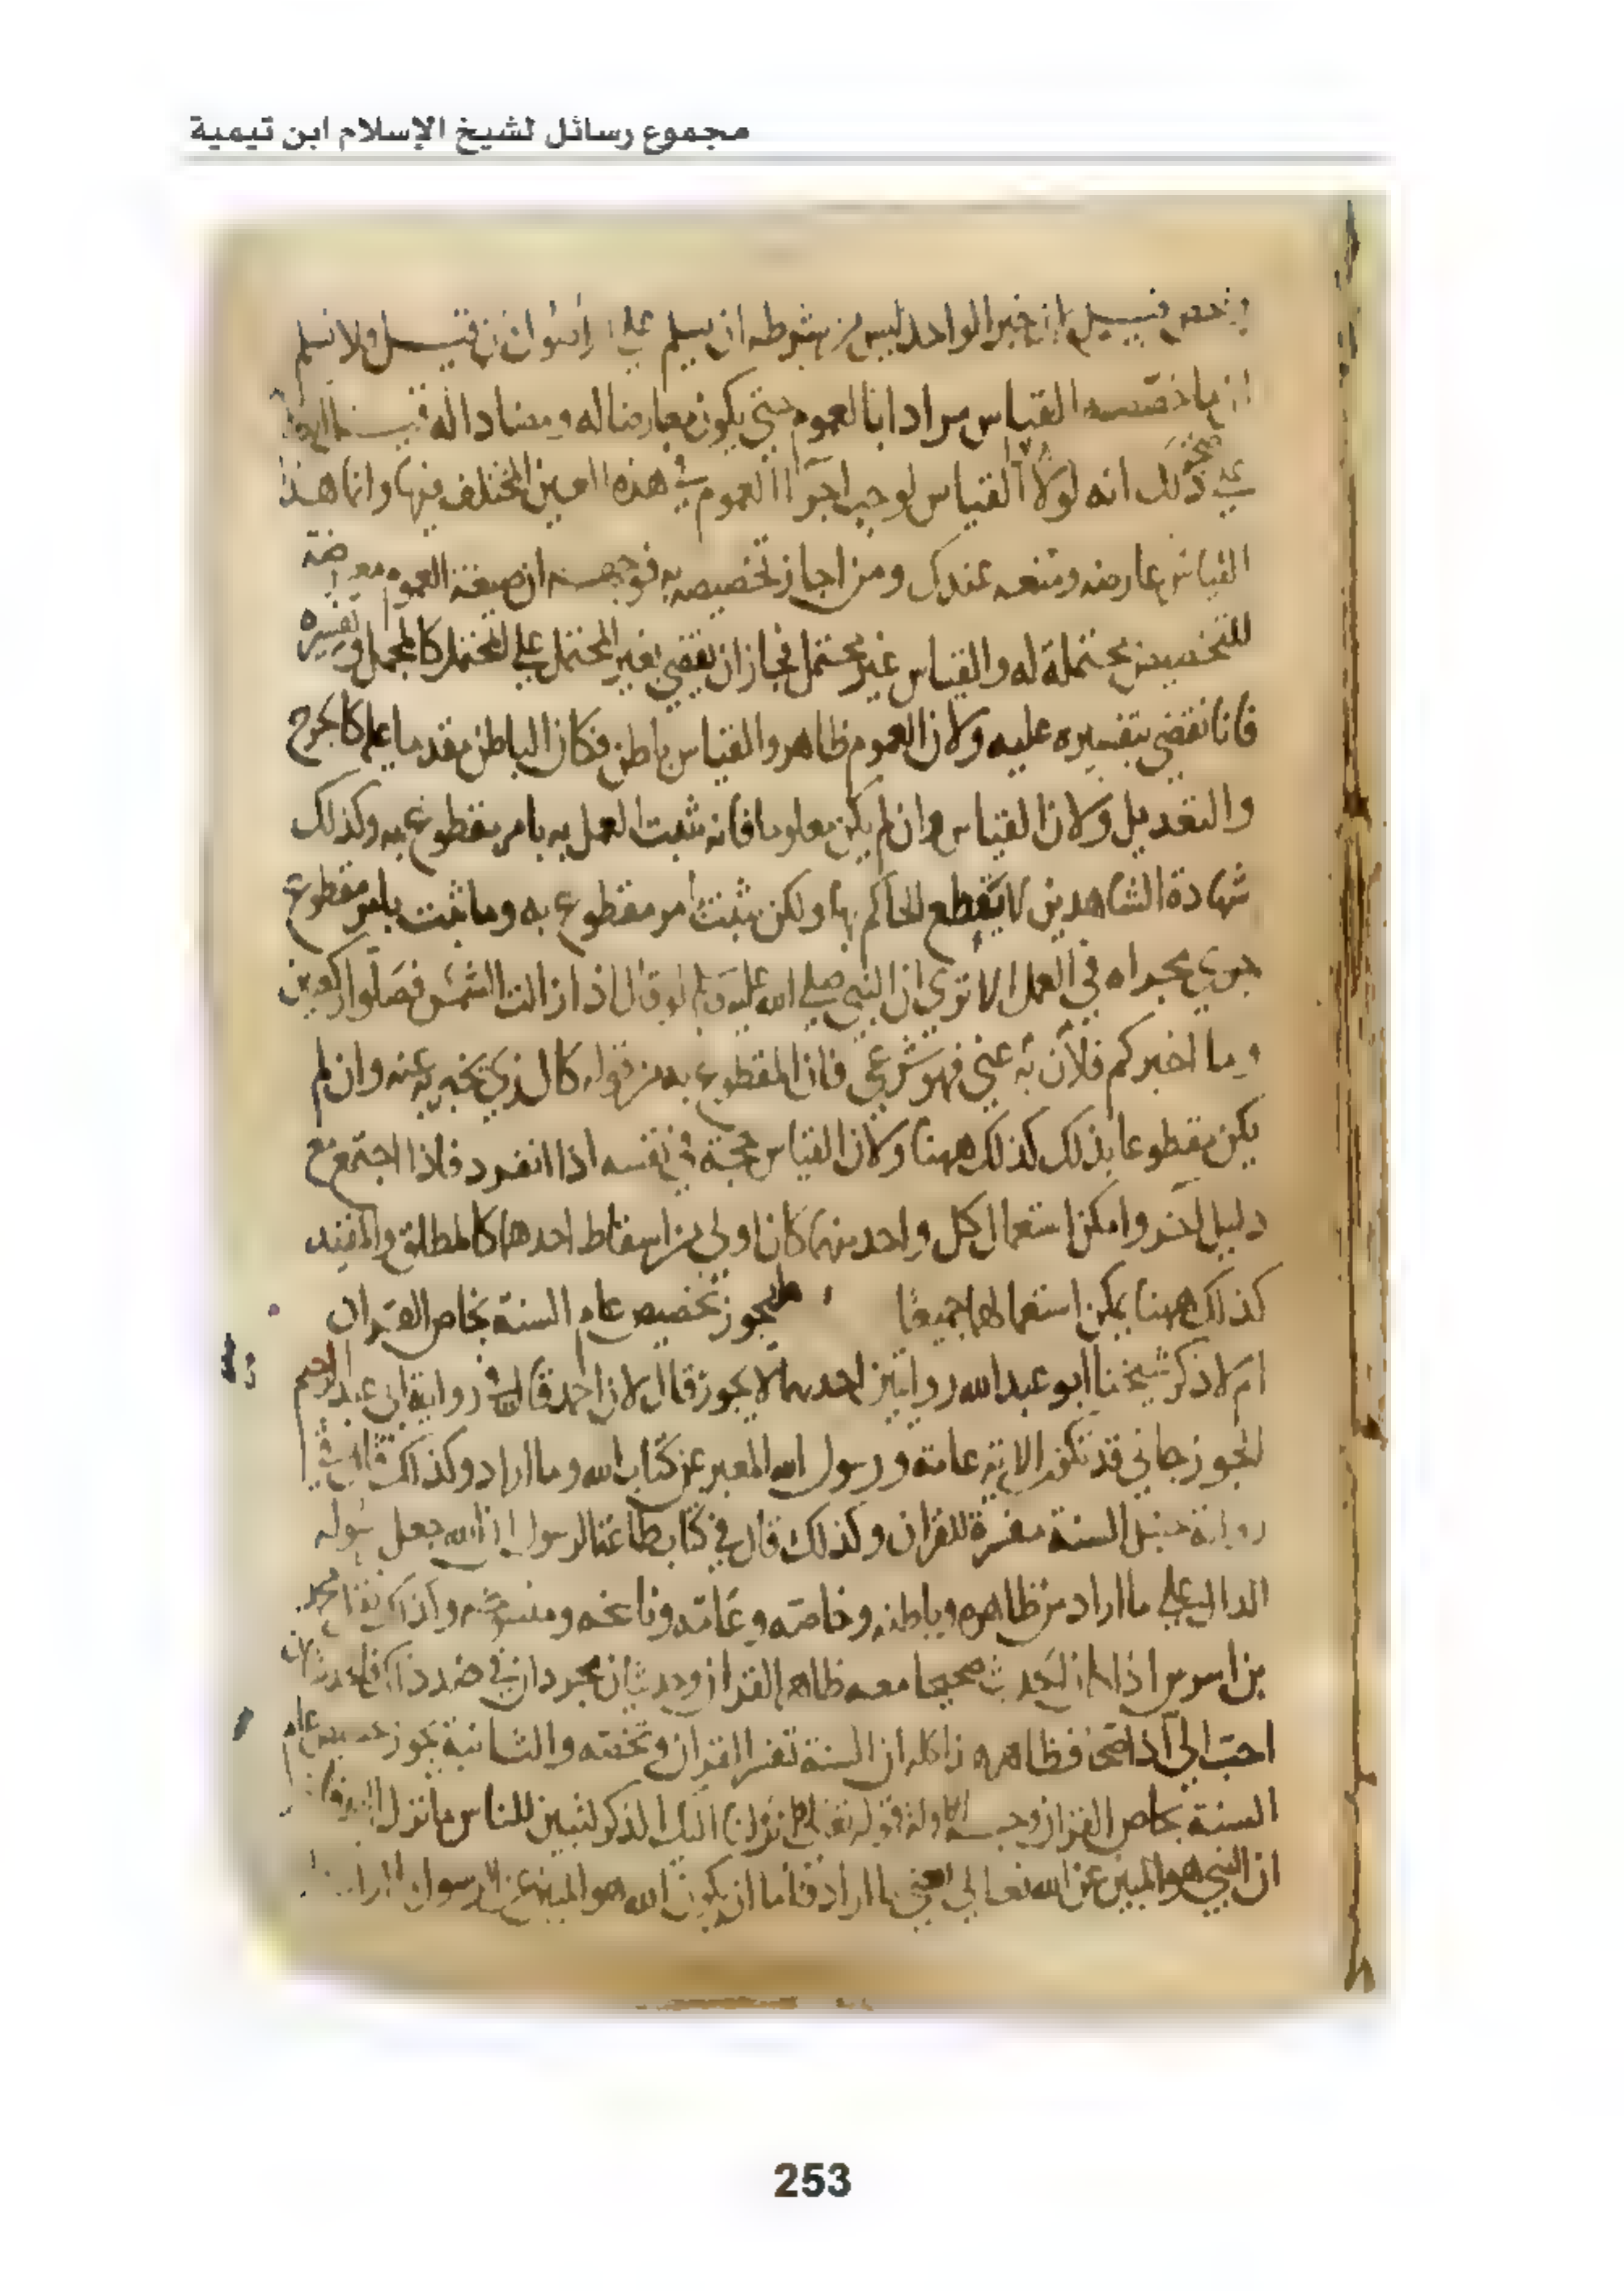 مجموع رسائل لشيخ الإسلام ابن تيمية
خبر الواحد ليس من شرطه ان يسلم على قيل ولا نسلم
القياس مرادا بالعموم حتى يكون معارضا له ومضادا له
ذلك انه لولا القياس لوجب اجرا العموم في هذه العين المختلف فيها وانما هذا
القياس عارضه ومنعه عندك ومن اجاز تخصيصه به فوجهه ان صيغة العموم معرضة
للتخصيص محتملة له والقياس غير محتمل فجاز ان يقضي بغير المحتمل على المحتمل كالمجمل وتفسيره
فانا نقضي بتفسيره عليه ولان العموم ظاهر والقياس باطن فكان الباطن مقدما عليه كالجرح
والتعديل ولان القياس وان لم يكن معلوما فانه ثبت العمل به بامر مقطوع به وكذلك
شهادة الشاهدين لا يقطع الحاكم بها ولكن ثبت امر مقطوع به وما ثبت بامر مقطوع
جرى مجراه في العمل الا ترى ان النبي صلى الله عليه وسلم لو قال اذا زالت الشمس فصلوا ركعتين
وما اخبركم فلان به عني فهو شرعي فان المقطوع به من قوله كالذي يخبر به عنه وان لم
يكن مقطوعا بذلك كذلك ههنا ولان القياس حجة في نفسه اذا انفرد فاذا اجتمع مع
دليل اخر وامكن استعمال كل واحد منهما كان اولى من اسقاط احدهما كالمطلق والمقيد
كذلك ههنا يمكن استعمالهما جميعا هل يجوز تخصيص عام السنة بخاص القران
ام لا ذكر شيخنا ابو عبد الله روايتين احدهما لا يجوز قال لان احمد قال في رواية ابي عبد الرحيم
الجوزجاني قد تكون الاية عامة ورسول الله المعبر عن كتاب الله وما اراد وكذلك قال في
رواية حنبل السنة مفسرة للقران وكذلك قال في كتاب طاعة الرسول ان الله جعل رسوله
الدال على ما اراد من ظاهره وباطنه وخاصه وعامه وناسخه ومنسوخه وكذلك نقل محمد
بن اشرس اذا كان الحديث صحيحا معه ظاهر القران وحديثان مجردان في ضد ذلك فالحديثان
احب الي اذا صحا فظاهر هذا كله ان السنة تفسر القران وتخصه والثانية يجوز تخصيص عام
السنة بخاص القران وجه الاولة قوله تعالى وانزلنا اليك الذكر لتبين للناس ما نزل اليهم
ان النبي هو المبين عن الله تعالى معنى ما اراد فاما ان يكون الله هو المبين عن الرسول
253